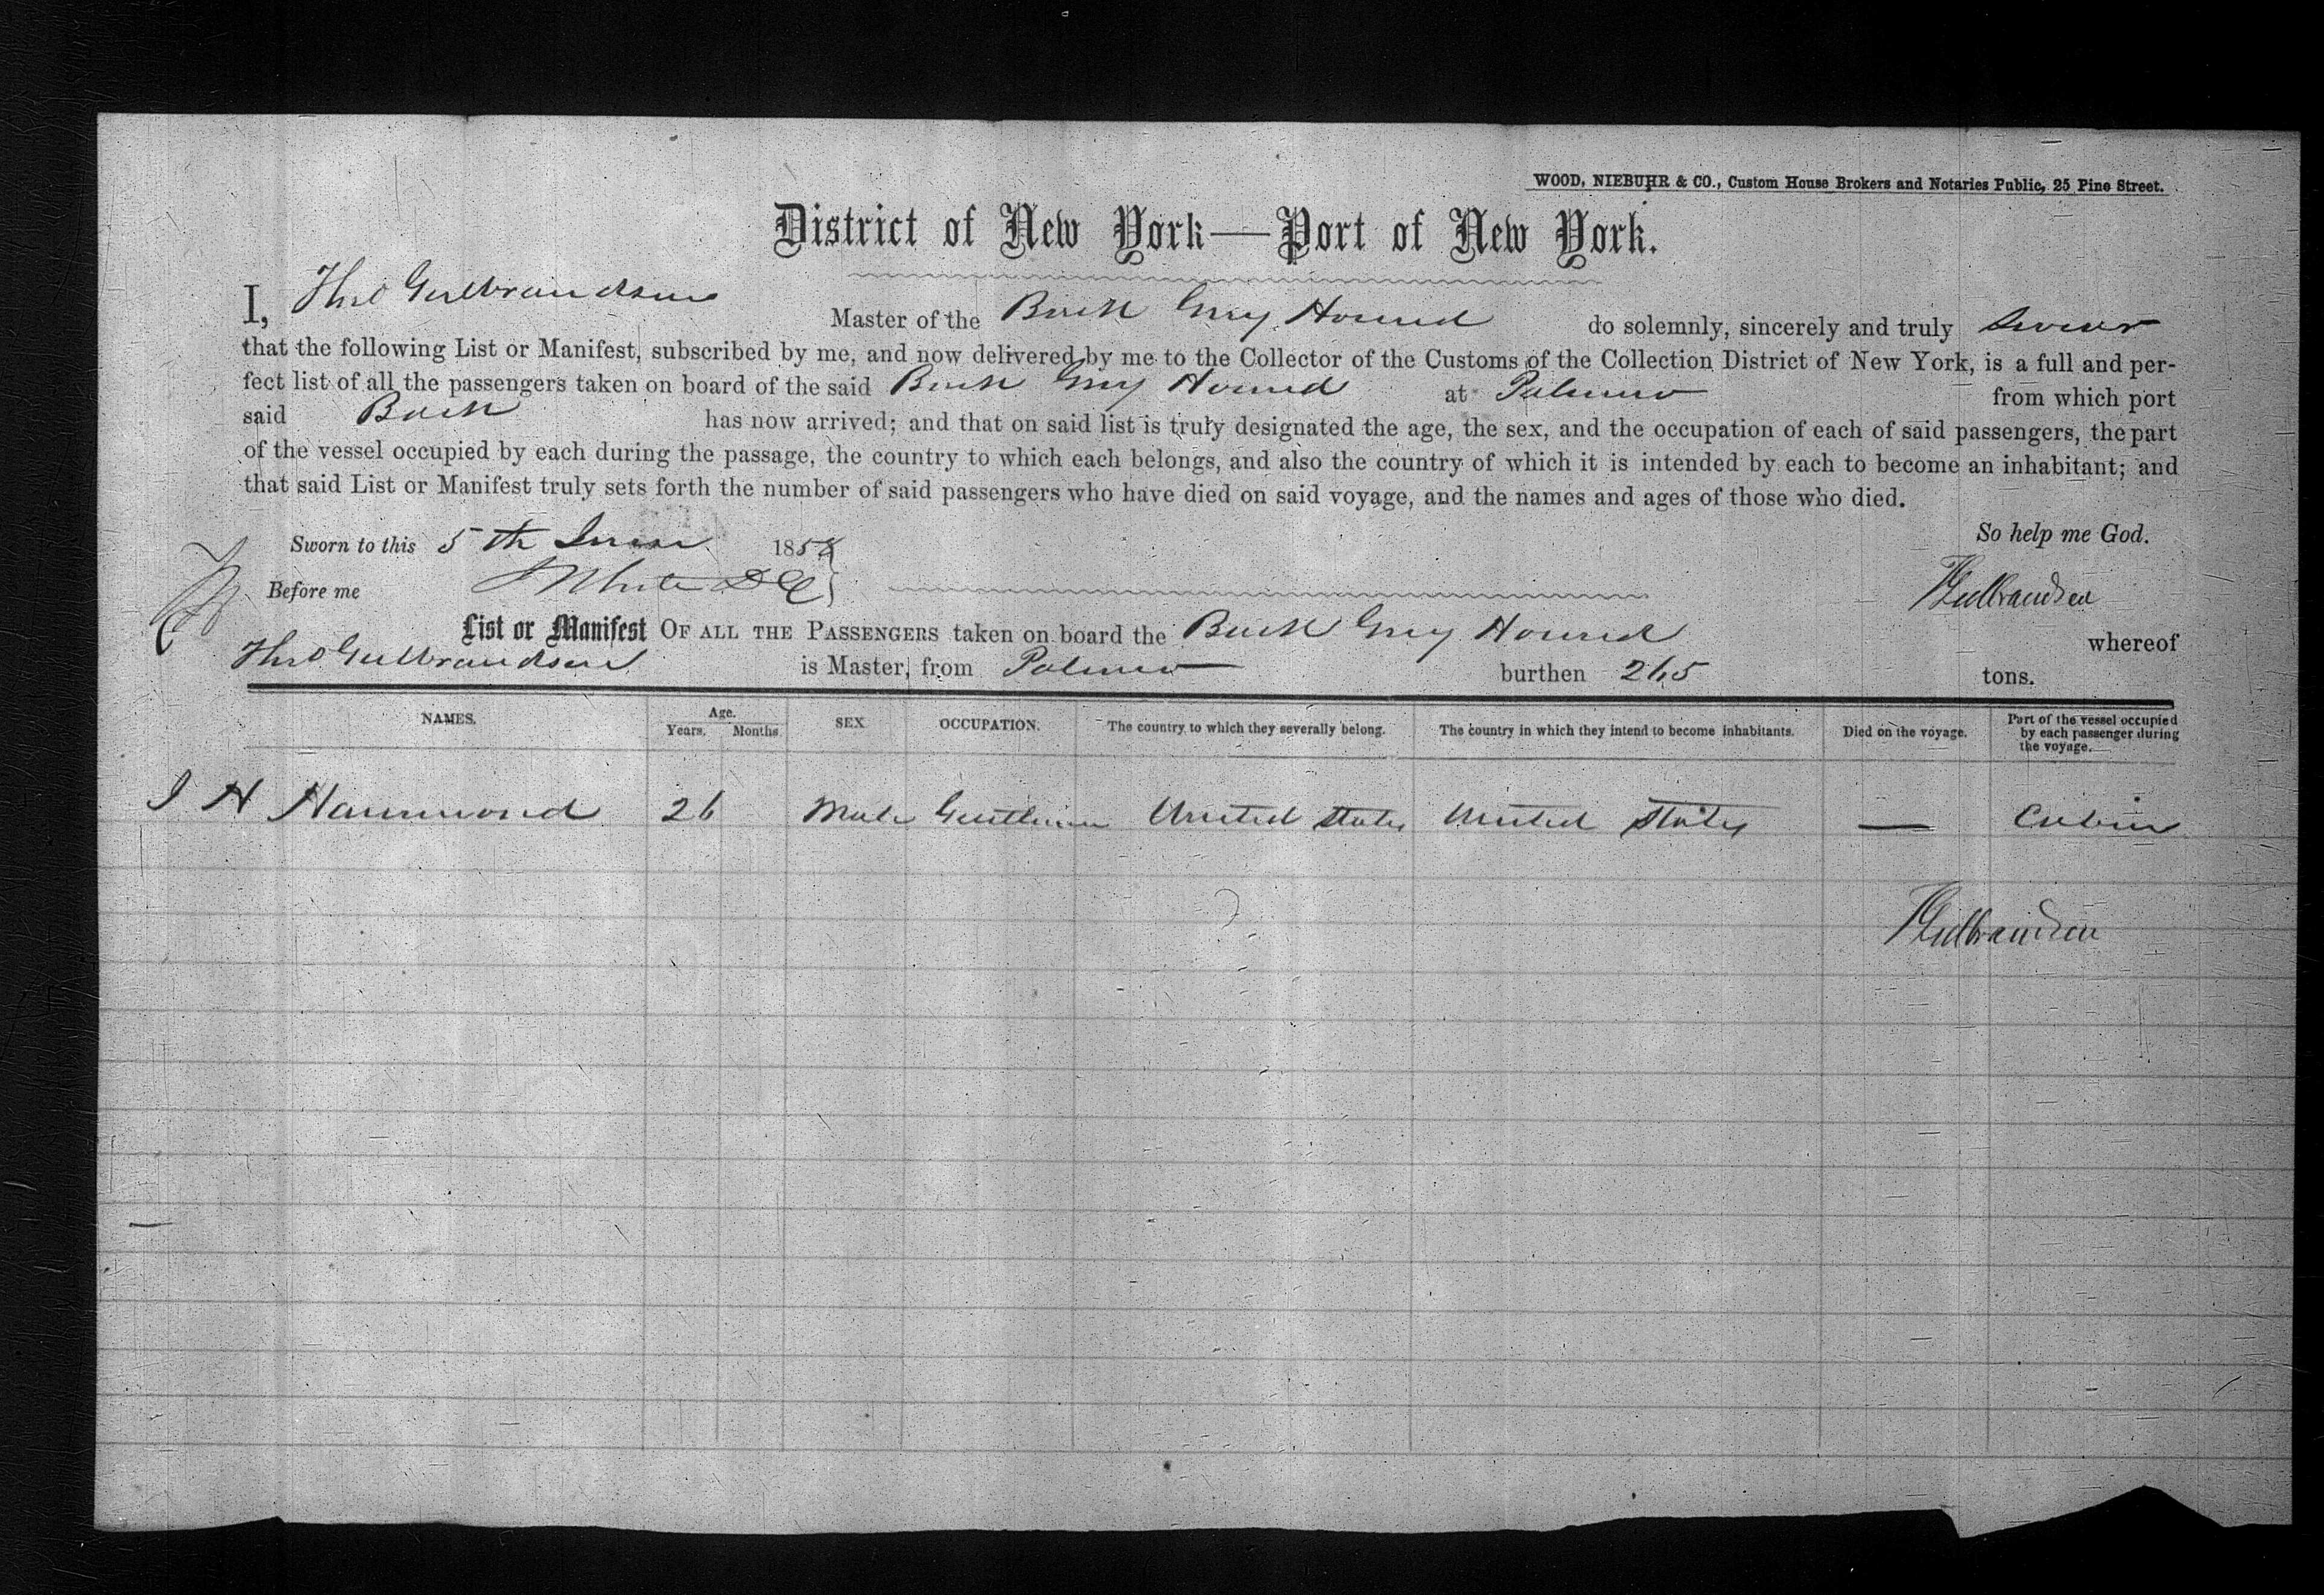 WOOD, NIEBUHR & CO., Custom House Brokers and Notaries Public, 25 Pine Street.
District of New York—Port of New York.
I, Theo Gulbrandsen Master of the Bark Grey Hound do solemnly, sincerely and truly swear
that the following List or Manifest, subscribed by me, and now delivered by me to the Collector of the Customs of the Collection District of New York, is a full and per-
fect list of all the passengers taken on board of the said Bark Grey Hound at Palermo from which port
said Bark has now arrived; and that on said list is truly designated the age, the sex, and the occupation of each of said passengers, the part
of the vessel occupied by each during the passage, the country to which each belongs, and also the country of which it is intended by each to become an inhabitant; and
that said List or Manifest truly sets forth the number of said passengers who have died on said voyage, and the names and ages of those who died.
So help me God.
Sworn to this 5th June 1858
Before me White
Gulbrandsen
List or Manifest OF ALL THE PASSENGERS taken on board the Bark Grey Hound whereof
Theo Gulbrandsen is Master, from Palermo burthen 265 tons.
NAMES. Age. Years. Months. SEX OCCUPATION. The country to which they severally belong. The country in which they intend to become inhabitants. Died on the voyage. Part of the vessel occupied by each passenger during the voyage.
J H Hammond 26 Male Gentleman United States United States — Cabin
Gulbrandsen